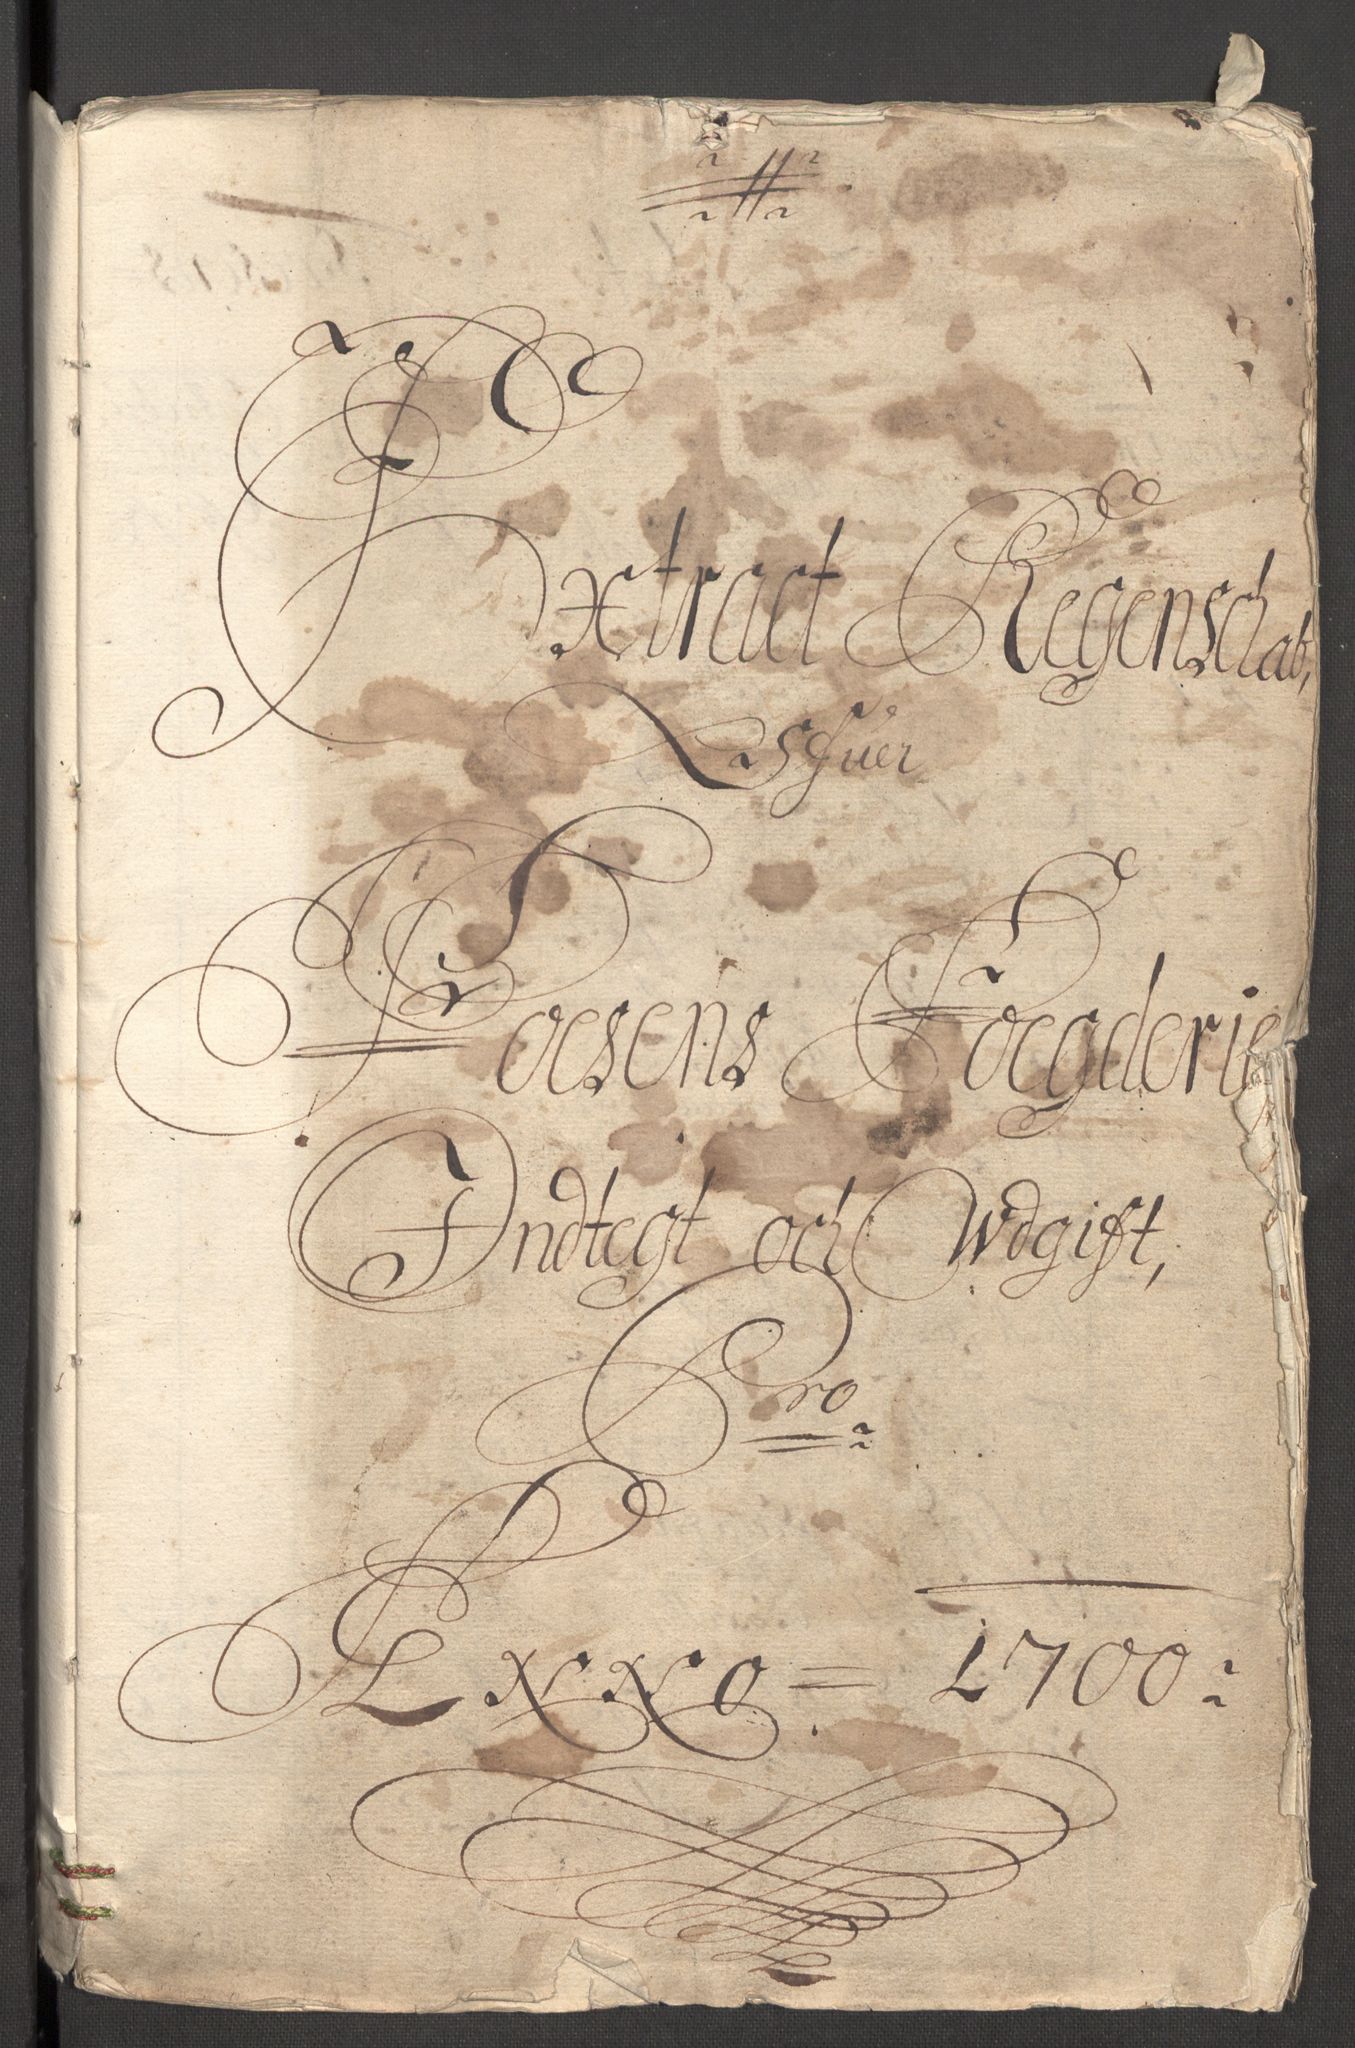 Extract Regenschab,
Foesens Foegderie
Indtegt och Wdgift,
Pro
Axxo = 1700